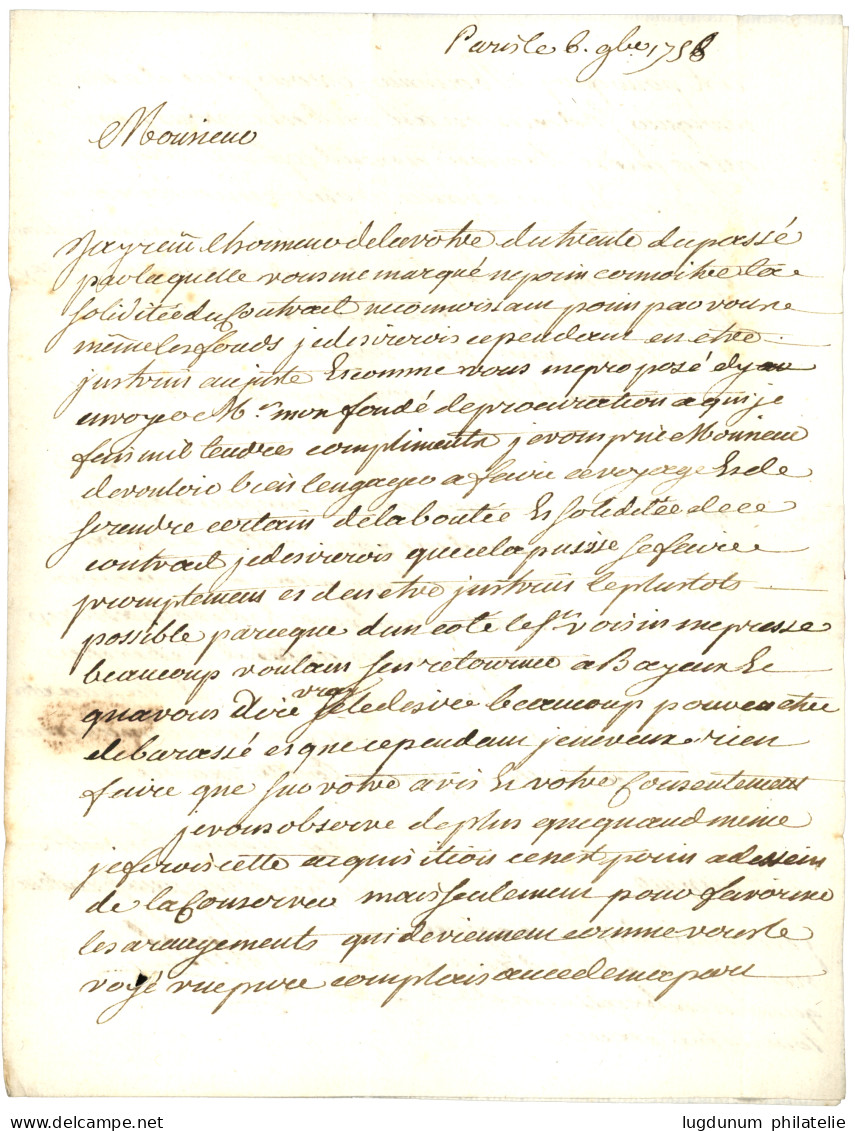 Paris le 6. 9bre 1758
Monsieur
Jay recû lhonneur de la votre du trente du passé
par laquelle vous me marqué ne point connoitre la
soliditée du Contrait ne connoissant point par vous
même les fonds je desirerois cependant en etre
justruis au juste Et comme vous me proposé dy
envoyer Mr mon fondé de procuration a qui je
fais mil tendres compliments je vous prie Monsieur
de vouloir bien lengager a faire ce voyage Et de
se rendre certain de la bontée Et soliditée de ce
contrait je desirerois que cela puisse se faire
promptement et den etre justruis le plustots
possible parceque dun coté le Sr voisin me presse
beaucoup voulant sen retourner a Bayeux Et
qua vous dire vray je le desire beaucoup pour en etre
debarassé et que cependant je ne veux rien
faire que sur votre avis Et votre Consentement
je vous observe de plus que quand meme
je ferois cette acquisition ce nest point a dessein
de la Conserver mais seulement pour favoriser
les arrangements qui deviennent comme vous le
voyé une pure complaisance de ma part
lugdunum philatelie